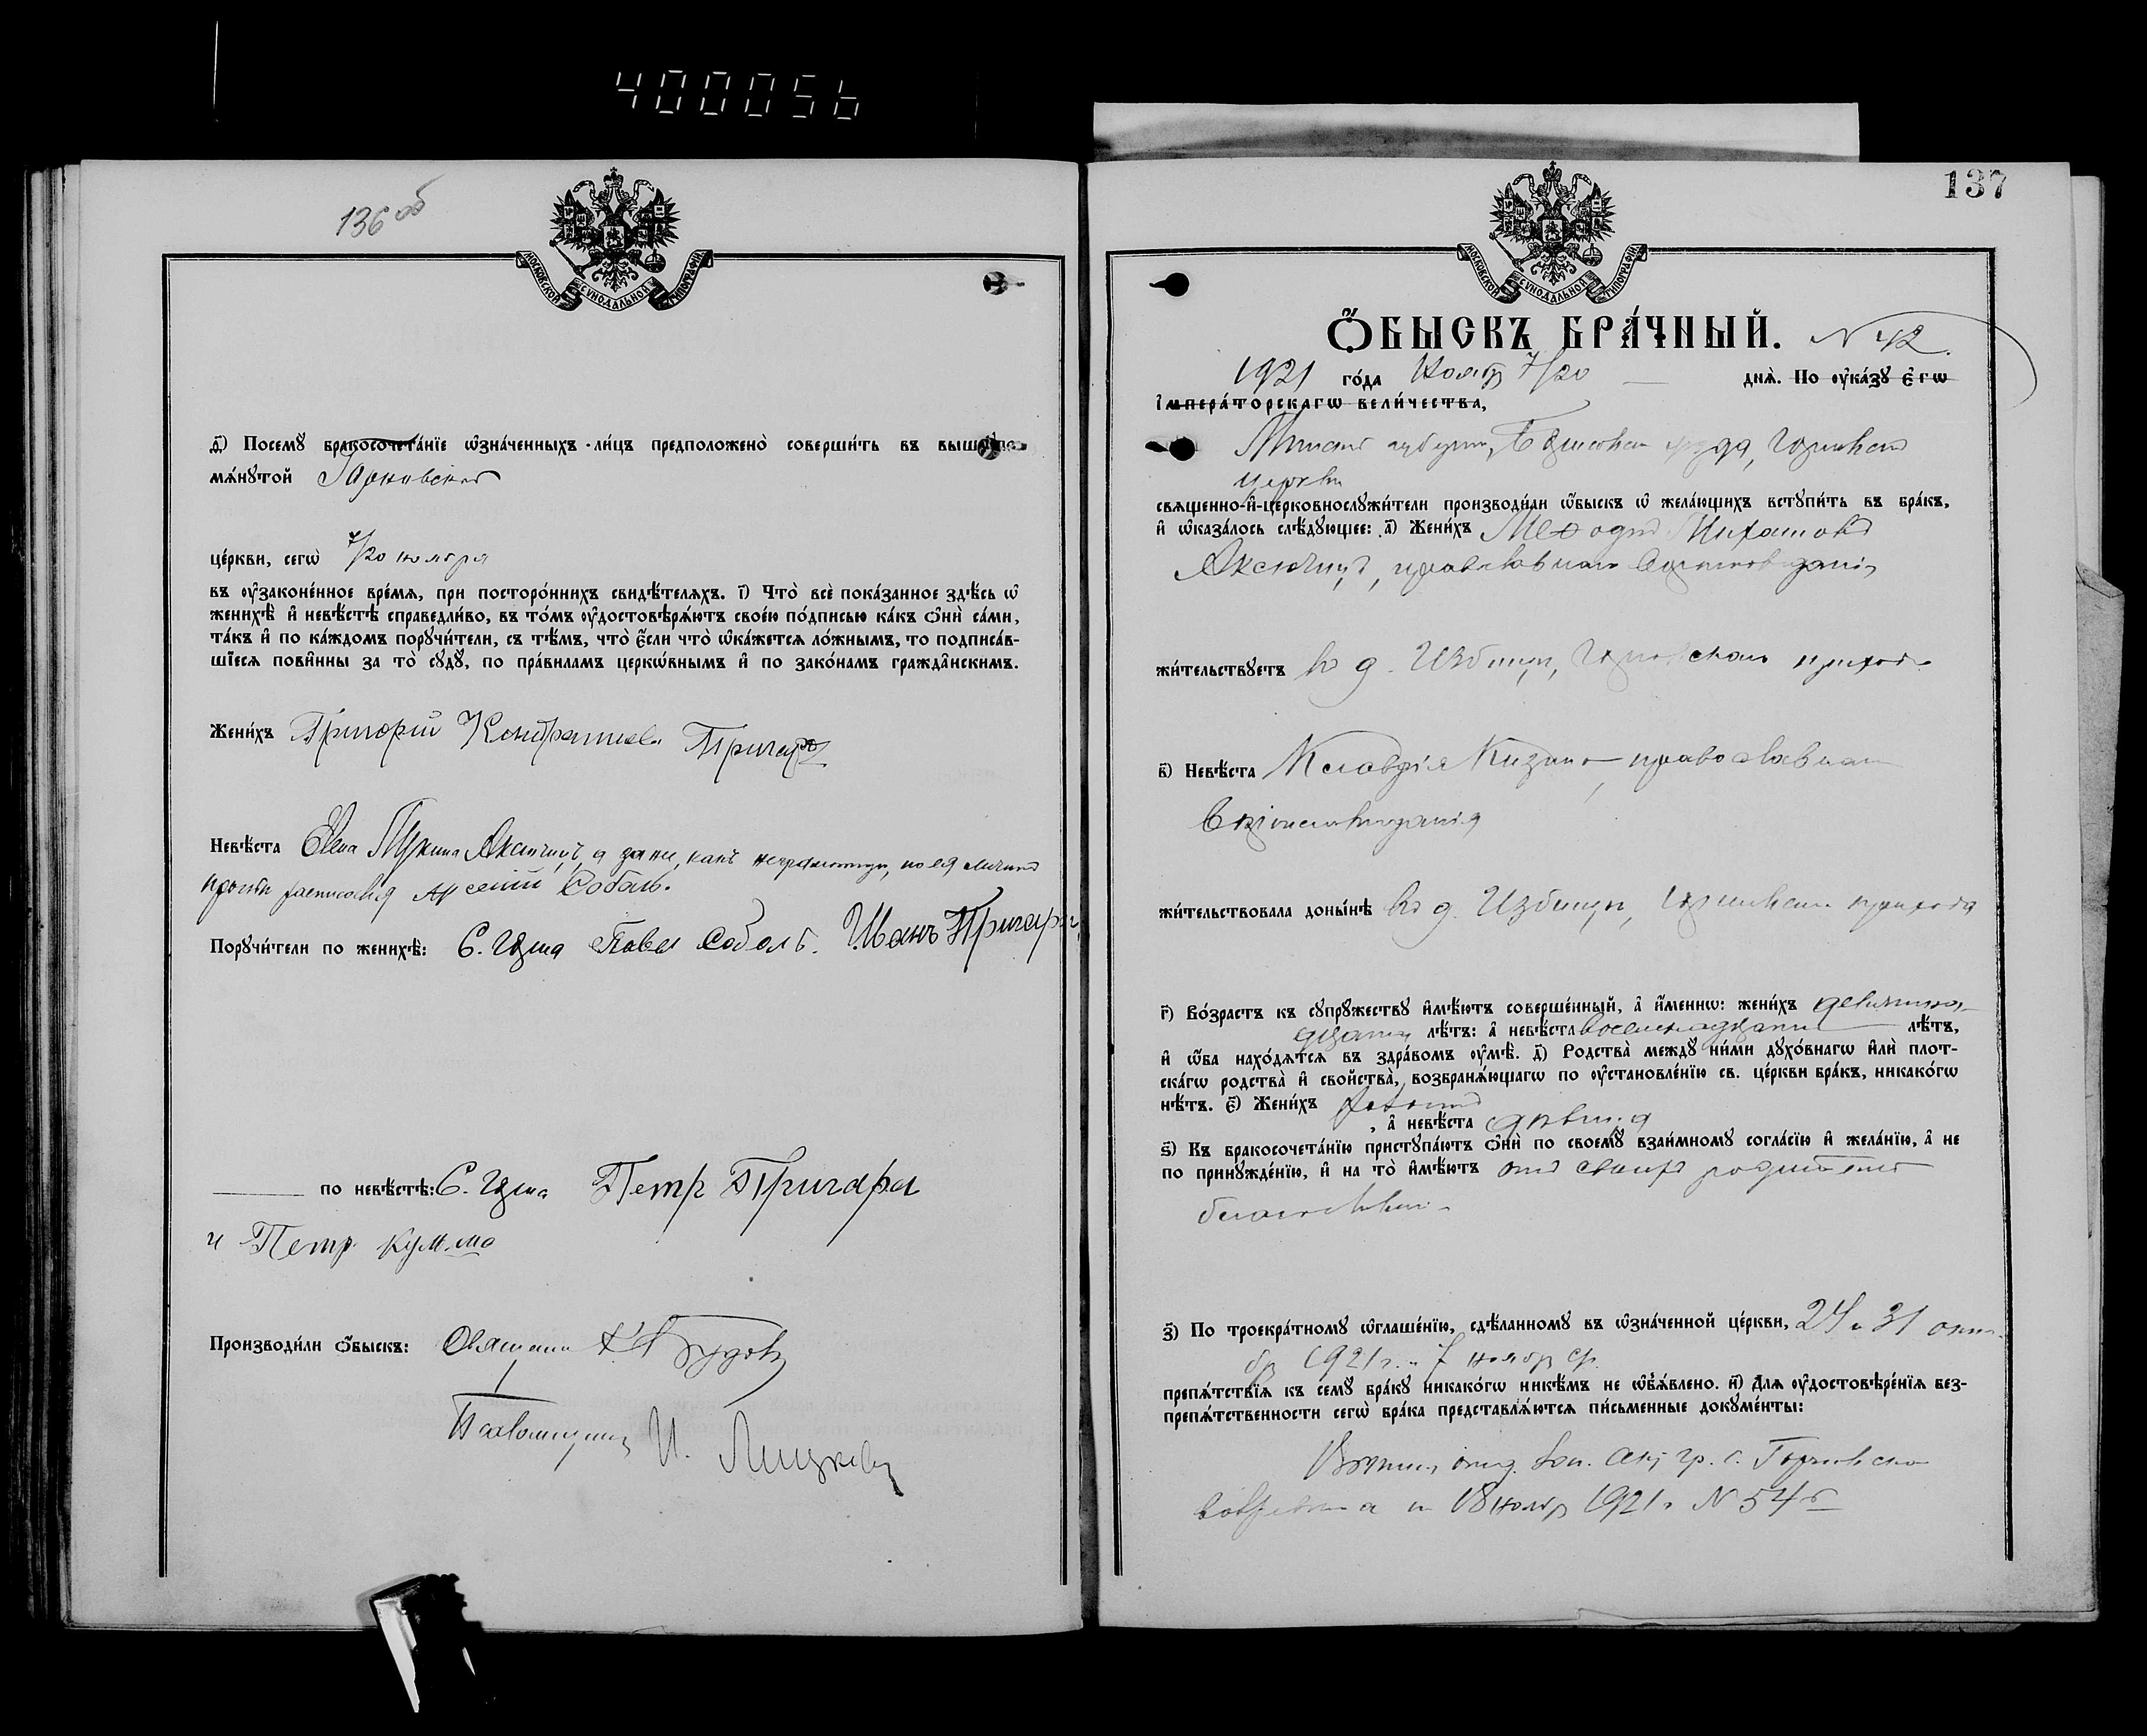 400056
136 об
МОСКОВСКОЙ СѴНОДАЛЬНОЙ ТИПОГРАФІИ
д҃і) Посемꙋ̀ бракосочета́нїе ѡ҆зна́ченныхъ ли́цъ предположено̀ соверши́ть въ вышепо-
мѧ́нꙋтой
це́ркви, сегѡ̀ 7/20 ноября
въ ᲂу҆законе́нное вре́мѧ, при посторо́ннихъ свидѣ́телѧхъ. і҃) Что̀ всѐ пока́занное здѣ́сь ѡ҆
женихѣ̀ и҆ невѣ́стѣ справедли́во, въ то́мъ ᲂу҆достовѣрѧ́ютъ свое́ю по́дписью ка́къ ѻ҆нѝ са́ми,
та́къ и҆ по ка́ждомъ порꙋчи́тели, съ тѣ́мъ, что̀ є҆́сли что̀ ѡ҆ка́жетсѧ ло́жнымъ, то подписа́в-
шїесѧ пови́нны за то̀ сꙋдꙋ̀, по пра́виламъ церкѡ́внымъ и҆ по зако́намъ гражда́нскимъ.
Жени́хъ Григорій Кондратьевъ Пригара
Невѣ́ста Елена Аксючицъ, а за нее, какъ неграмотную, по ея личной
просьбѣ росписался Арсеній Соболь.
Порꙋчи́тели по женихѣ̀: С. Павел Соболь. Иванъ Пригара
по невѣ́стѣ: С. Петр Пригара
и Петр
Производи́ли ѻ҆́быскъ: Священник
Псаломщикъ И.
137
МОСКОВСКОЙ СѴНОДАЛЬНОЙ ТИПОГРАФІИ
Ѻ҆́БЫСКЪ БРА́ЧНЫЙ. N 42.
1921 го́да Ноября 7/20 днѧ̀. По ᲂу҆ка́зꙋ Є҆гѡ̀
І҆мпера́торскагѡ вели́чества,
Минской губерніи, Борисовскаго уѣзда,
церкви
свѧщенно-и҆-церковнослꙋжи́тели производи́ли ѻ҆́быскъ ѡ҆ жела́ющихъ встꙋпи́ть въ бра́къ,
и҆ ѡ҆каза́лось слѣ́дꙋющее: а҃) Жени́хъ Меѳодій
Аксючицъ, православнаго вѣроисповѣданія
жи́тельствꙋетъ въ д. Избищи, прихода
в҃) Невѣ́ста Клавдія православнаго
вѣроисповѣданія
жи́тельствовала доны́нѣ въ д. Избищи, прихода
г҃) Во́зрастъ къ сꙋпрꙋ́жествꙋ и҆мѣ́ютъ соверше́нный, а҆ и҆́меннѡ: жени́хъ девятна-
дцати лѣ́тъ: а҆ невѣ́ста восемнадцати лѣ́тъ,
и҆ ѻ҆́ба нахо́дѧтсѧ въ здра́вомъ ᲂу҆мѣ̀. д҃) Родства̀ междꙋ̀ ни́ми дꙋхо́внагѡ и҆лѝ плот-
ска́гѡ родства̀ и҆ сво́йства̀, возбранѧ́ющагѡ по ᲂу҆становле́нїю св. це́ркви бра́къ, никако́гѡ
нѣ́тъ. є҃) Жени́хъ холостъ
, а҆ невѣ́ста дѣвица
ѕ҃) Къ бракосочета́нїю пристꙋпа́ютъ ѻ҆нѝ по своемꙋ̀ взаи́мномꙋ согла́сїю и҆ жела́нїю, а҆ не
по принꙋжде́нїю, и҆ на то̀ и҆мѣ́ютъ отъ своихъ родителей
благословеніе
з҃) По троекра́тномꙋ ѡ҆глаше́нїю, сдѣ́ланномꙋ въ ѡ҆зна́ченной це́ркви, 24 и 31 октя-
бря 1921 г. и 7 ноября ст.
препѧ́тствїѧ къ семꙋ̀ бра́кꙋ никако́гѡ никѣ́мъ не ѡ҆б̾ѧ́влено. и҃) Длѧ ᲂу҆достовѣре́нїѧ без-
препѧ́тственности сегѡ̀ бра́ка представлѧ́ютсѧ пи́сьменные докꙋме́нты:
18 ноября 1921 г. N 54